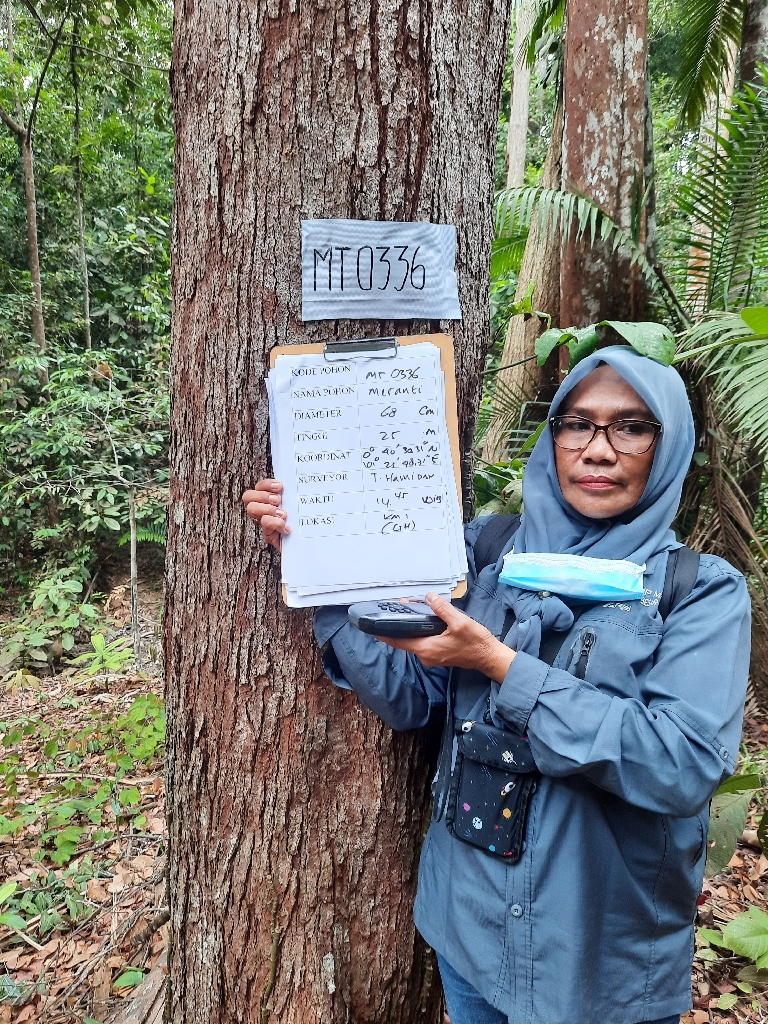 MT 0336
KODE POHON MT 0336
NAMA POHON Meranti
DIAMETER 68 Cm
TINGGI 25 M
KOORDINAT
SURVEYOR T. Hamidah
WAKTU 14.45 WIB
LOKASI